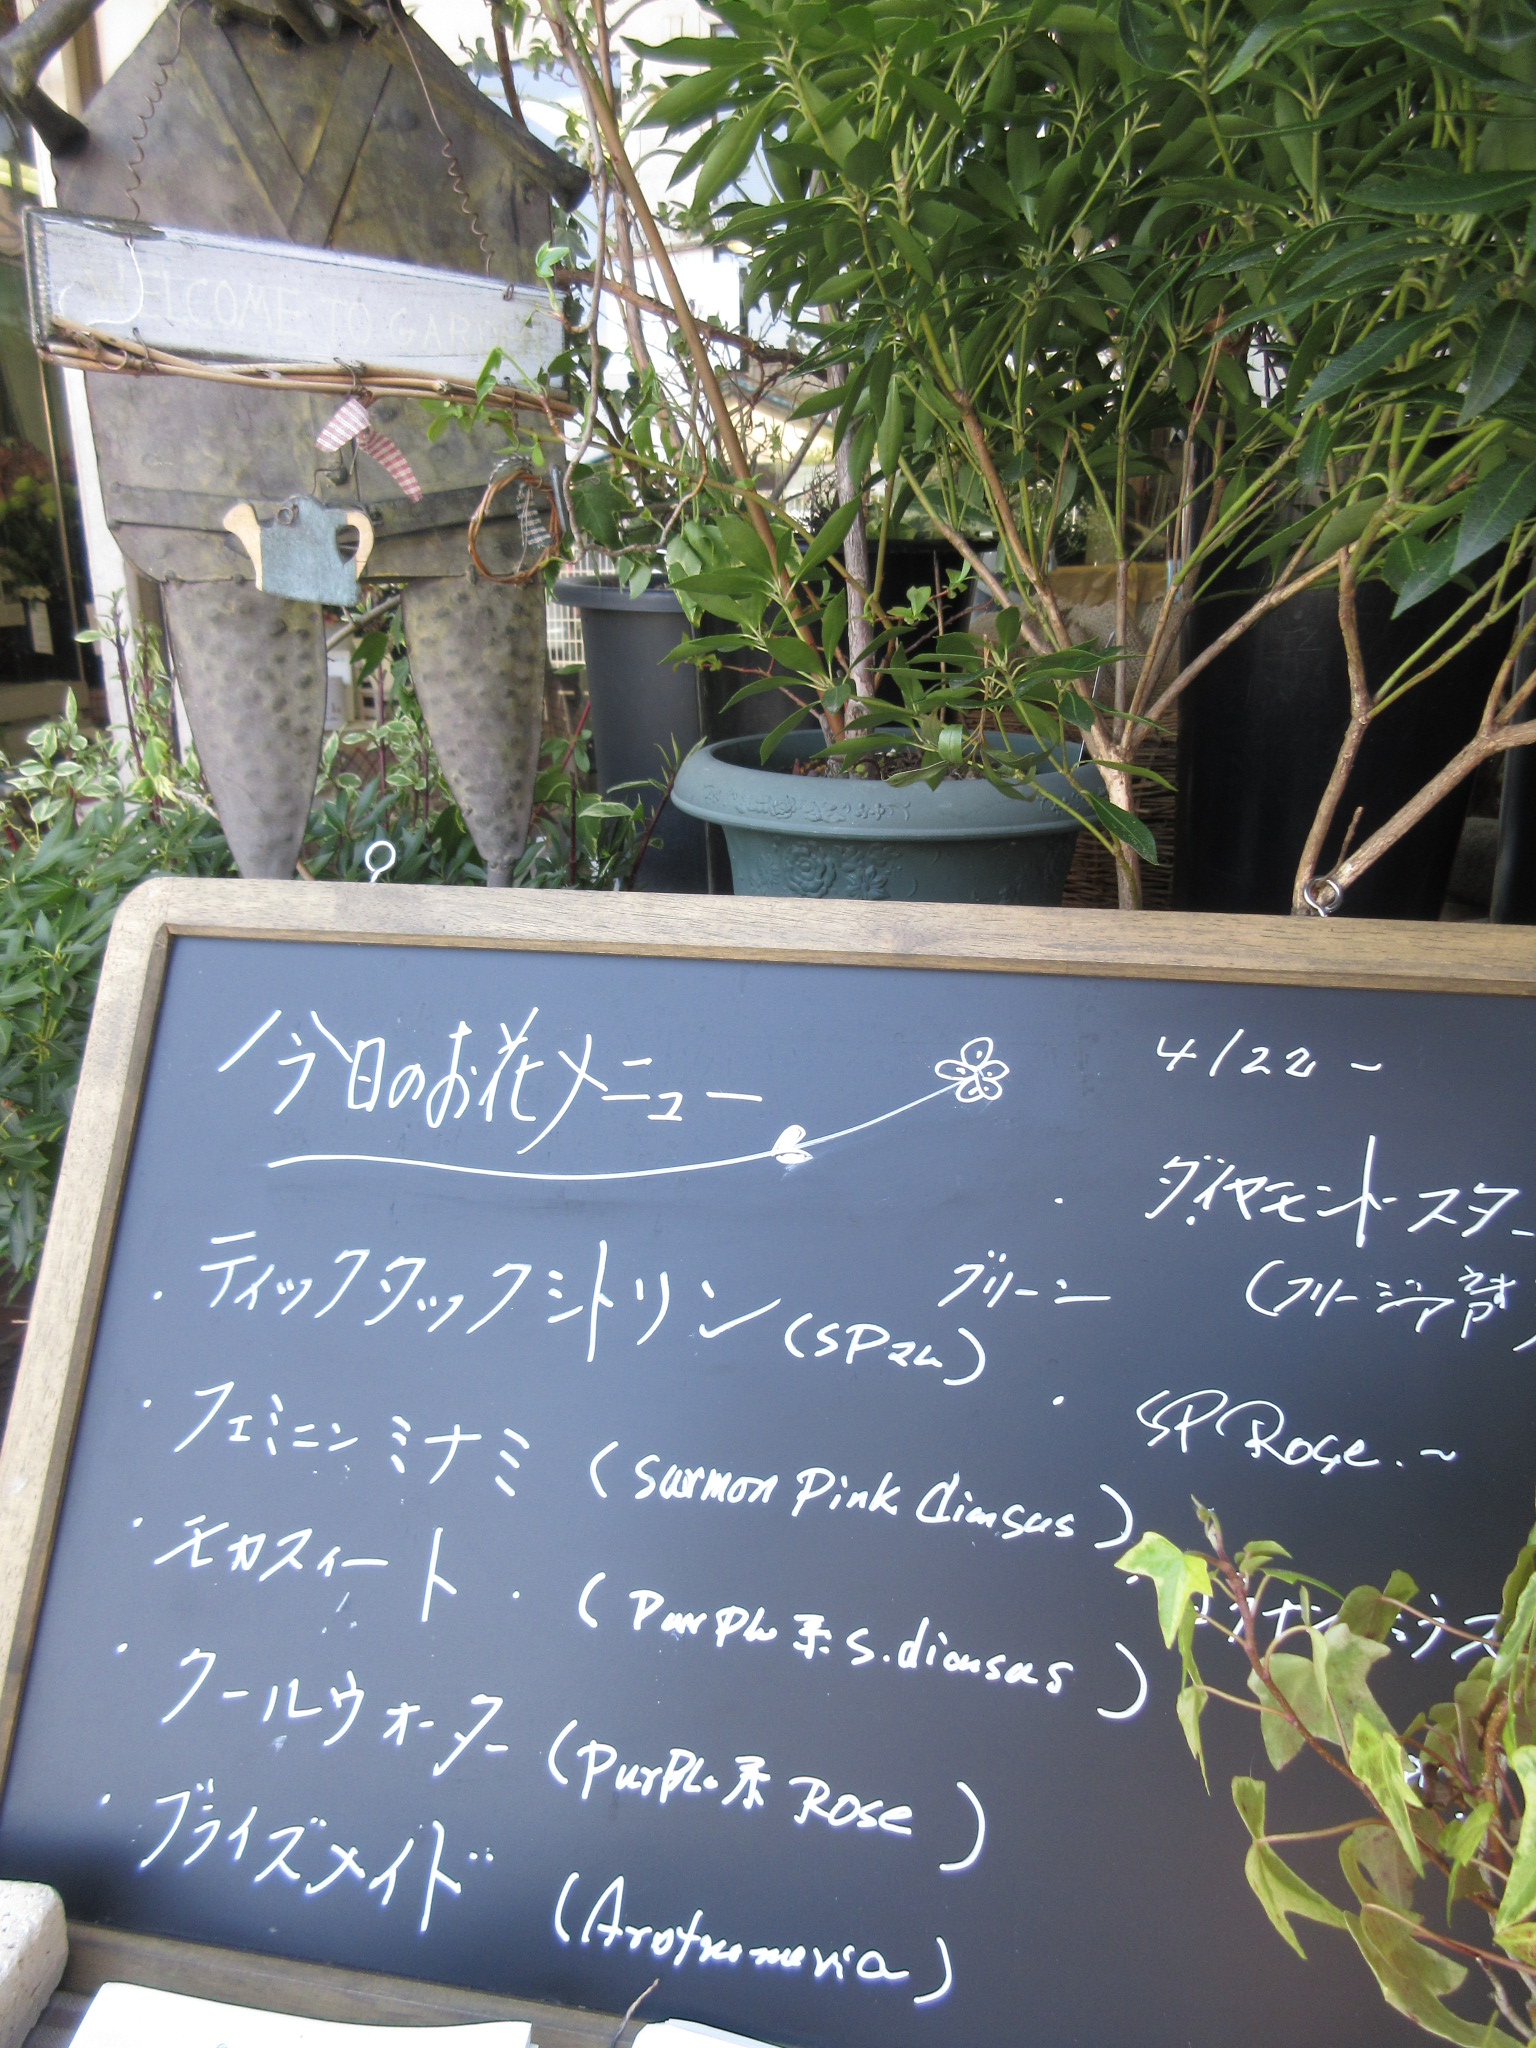 WELCOME TO GARDEN
今日のお花メニュー
4/22 ~
・ティックタックシトリン (SPマム)
・フェミニン ミナミ (Surmon Pink diansas)
・モカスィート・ (Purple系 S.diansas)
・クールウォーター (Purple系 Rose)
・ブライズメイド (Arotromeria)
・ダイヤモンドースター
グリーン (フリージア咲)
・SP Rose. ~